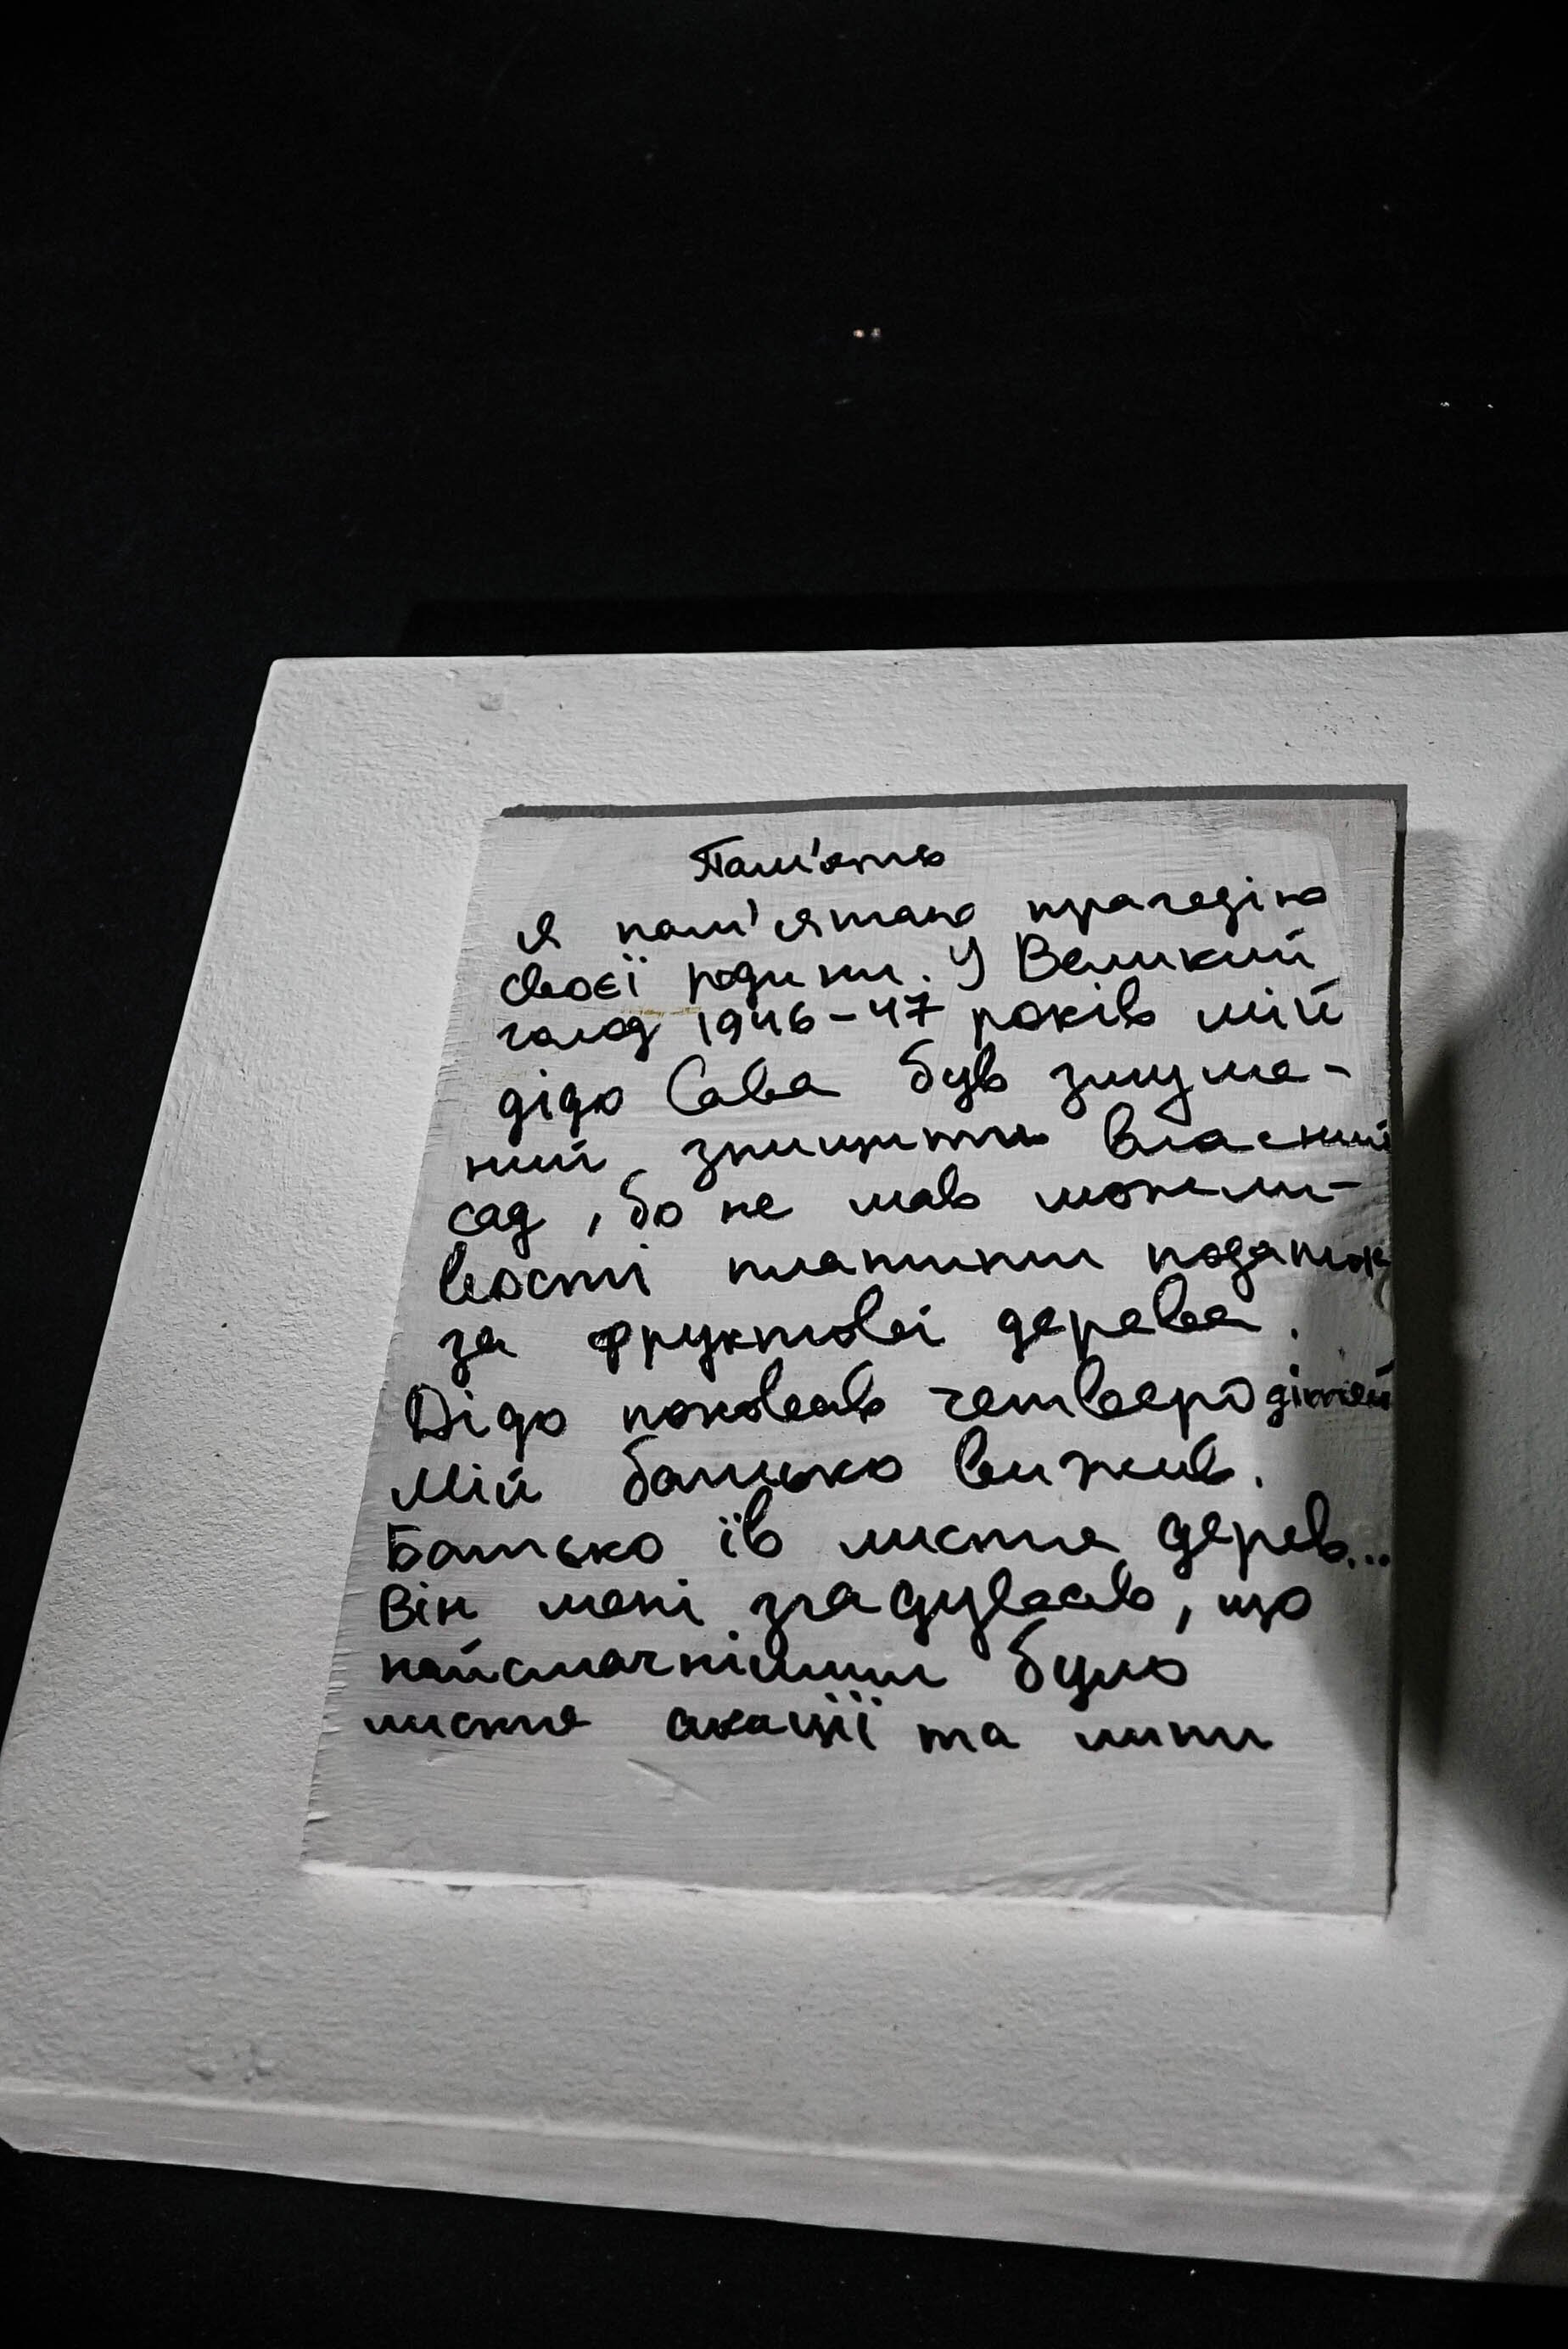 Пам'ять
Я пам'ятаю трагедію
своєї родини. У Великий
голод 1946-47 років мій
дідо Сава був змуше-
ний знищити власний
сад, бо не мав можли-
вості платити податок
за фруктові дерева.
Дідо поховав четверо дітей
Мій батько вижив.
Батько їв листя дерев...
Він мені згадував, що
найсмачнішим було
листя акації та липи